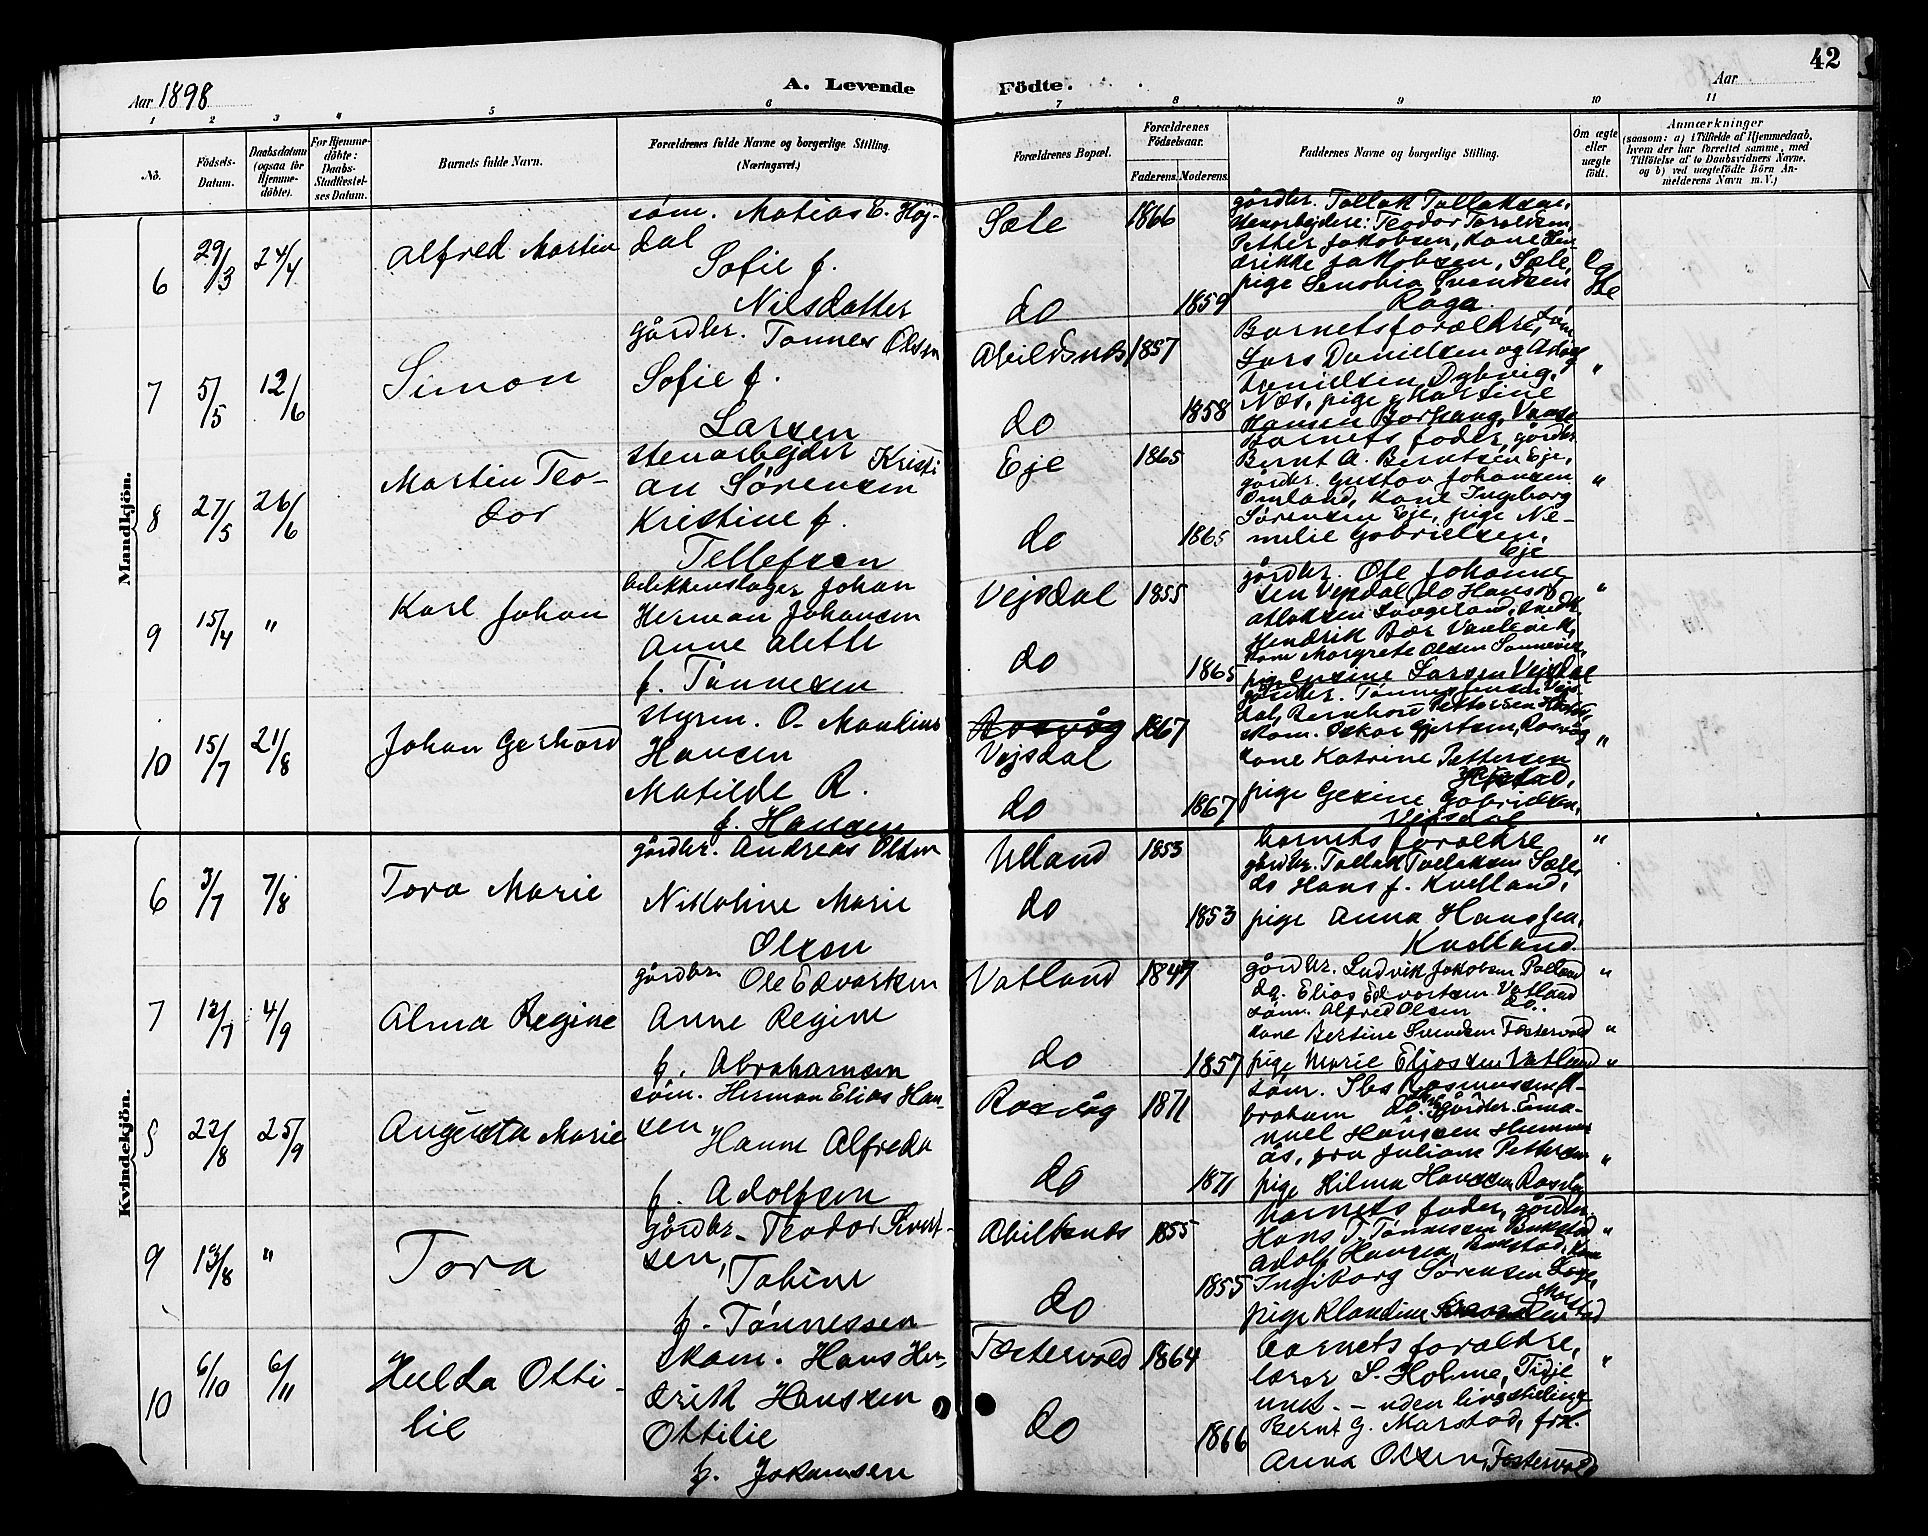 42
Aar 1898
A. Levende
Födte.
Aar
1 2 3 4 5 6 7 8 9 10 11
No.
Födsels-
Datum.
Daabsdatum
(ogsaa for
Hjemme-
döbte).
For Hjemme-
döbte:
Daabs-
Stadfæstel-
ses Datum.
Barnets fulde Navn.
Forældrenes fulde Navne og borgerlige Stilling.
(Næringsvei.)
Forældrenes Bopæl.
Forældrenes
Födselsaar.
Faderens. Moderens.
Faddernes Navne og borgerlige Stilling.
Om ægte
eller
uægte
født.
Anmærkninger
(saasom: a) i Tilfælde af Hjemmedaab,
hvem der har forrettet samme, med
Tilföielse af to Daabsvidners Navne.
og b) ved uægtefödte Börn An-
melderens Navn m.V.)
Mandkjön.
6
29/3
24/4
Alfred Martin
søm. Matias E. Høj-
dal
Sofie f.
Nilsdatter
Sæle
do
1866
1859
gårdbr. Tollak Tollaksen,
stenarbejdere: Teodor Torolvsen,
Petter Jakobsen, kone Hen-
drikke Jakobsen, Sæle,
pige Senobia Svendsen
Råga.
Egte
7
5/5
12/6
Simon
gårdbr. Tønnes Olsen
Sofie f.
Larsen
Abildsnes
do
1857
1858
Barnets forældre, søm.
Lars Danielsen og
Danielsen Dybvig,
Næs, pige Martine
Hansen Borhaug, Vanse
"
8
27/5
26/6
Martin Teo-
dor
stenarbejder Kristi
an Sørensen
Kristine f.
Tellefsen
Eje
do
1865
1865
Barnets fader, gårdbr.
Bernt A. Berntsen Eje,
gårdbr. Gustav Johansen
Omland, kone Ingeborg
Sørensen Eje, pige Ne-
melie Gabrielsen,
Eje
"
9
15/4
"
Karl Johan
blikkenslager Johan
Herman Johansen
Anne Alette
f. Tønnesen
Vejsdal
do
1855
1865
gårdbr. Ole Johanne
sen Vejsdal, do Hans
Atlaksen
Hendrik Bær
kone Margrete Olsen
pige Gesine Larsen Vejsdal
"
10
15/7
21/8
Johan Gerhard
styrm. O. Maulius
Hansen
Matilde R.
f. Hansen
Rosvåg
Vejsdal
do
1867
1867
gårdbr. Tønnes Jensen Vejs-
dal, Bernhard Pettersen
skom. Oskar Gjertsen, Rosvåg
kone Katrine Pettersen
pige Gesine Gabrielsen,
Vejsdal
"
Kvindekjön.
6
3/7
7/8
Tora Marie
gårdbr. Andreas Olsen
Nikoline Marie
Olsen
Ulland
do
1853
1853
barnets forældre
gårdbr. Tollak Tollaksen Sæle,
do Hans J. Kvelland,
pige Anna Hanssen,
Kvelland.
"
7
12/7
4/9
Alma Regine
gårdbr. Ole Edvartsen
Anne Regine
f. Abrahamsen
Vatland
do
1847
1857
gårdbr. Ludvik Jakobsen
do. Elias Edvartsen Vatland
søm. Alfred Olsen do.
kone Bertine Svendsen Fostervold
pige Marie Eliassen Vatland
"
"
"
8
22/8
25/9
Augusta Marie
søm. Herman Elias Han-
sen
Hanne Alfreda
f. Adolfsen
Rosvåg
do
1871
1871
søm. Ibs Rasmussen, A-
braham do. gårdbr. Ema-
nuel Hanssen Hummer
ås, fru Juliane Pettersen
pige Hilma Hanssen Rosvåg
"
9
13/8
"
Tora
gårdbr. Teodor Sivert-
sen,
Tobine
f. Tønnessen
Abilsnes
do
1855
1855
barnets fader, gårdbr.
Hans T. Tønnessen Bukstad
Adolf Hansen, Bukstad, kone
Ingeborg Sørensen
pige Klaudine
"
10
6/10
6/11
Hulda Otti-
lie
skom. Hans Hen-
drik Hanssen
Ottilie
f. Johansen
Fostervold
do
1864
1866
barnets forældre,
lærer S. Holme, Tidje
unk. – uden livsstilling
Bernt G. Marstad, frk.
Anna Olsen, Fostervold
"